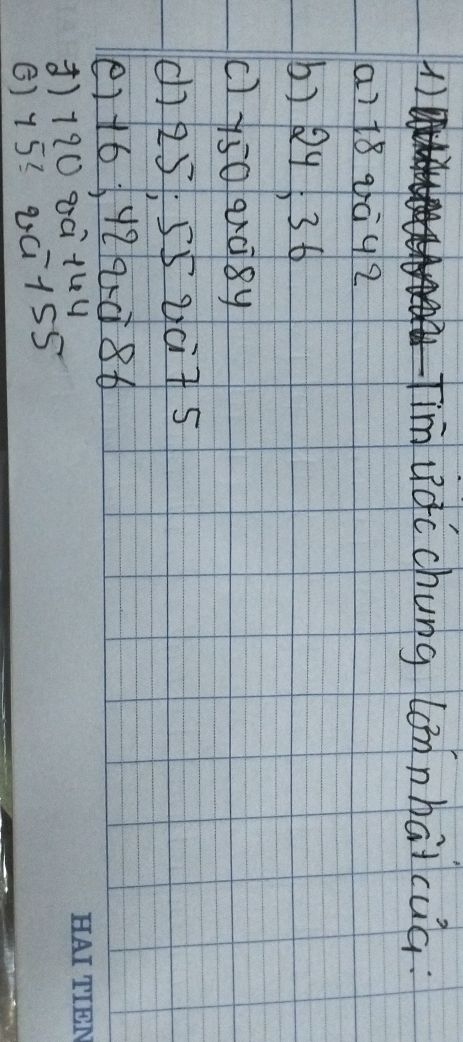 1) Tìm ước chung lớn nhất của:
a) 18 và 42
b) 24; 36
c) 150 và 84
d) 25; 55 và 75
e) 16; 42 và 86
g) 120 và 144
và 155
HAI TIEN